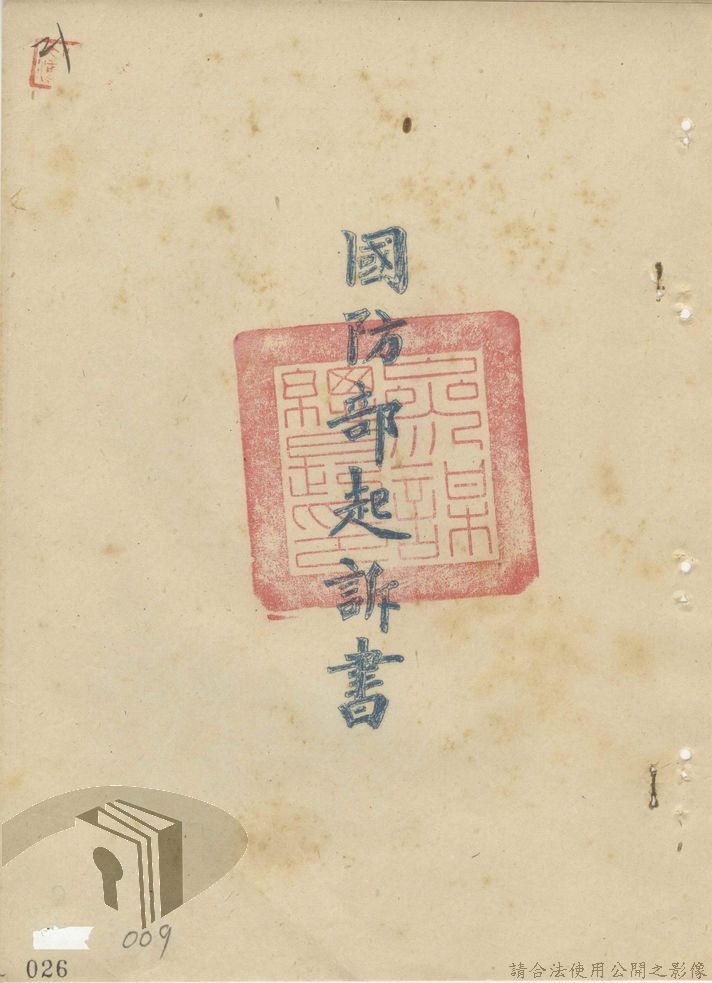 21
國防部起訴書
009
026
請合法使用公開之影像